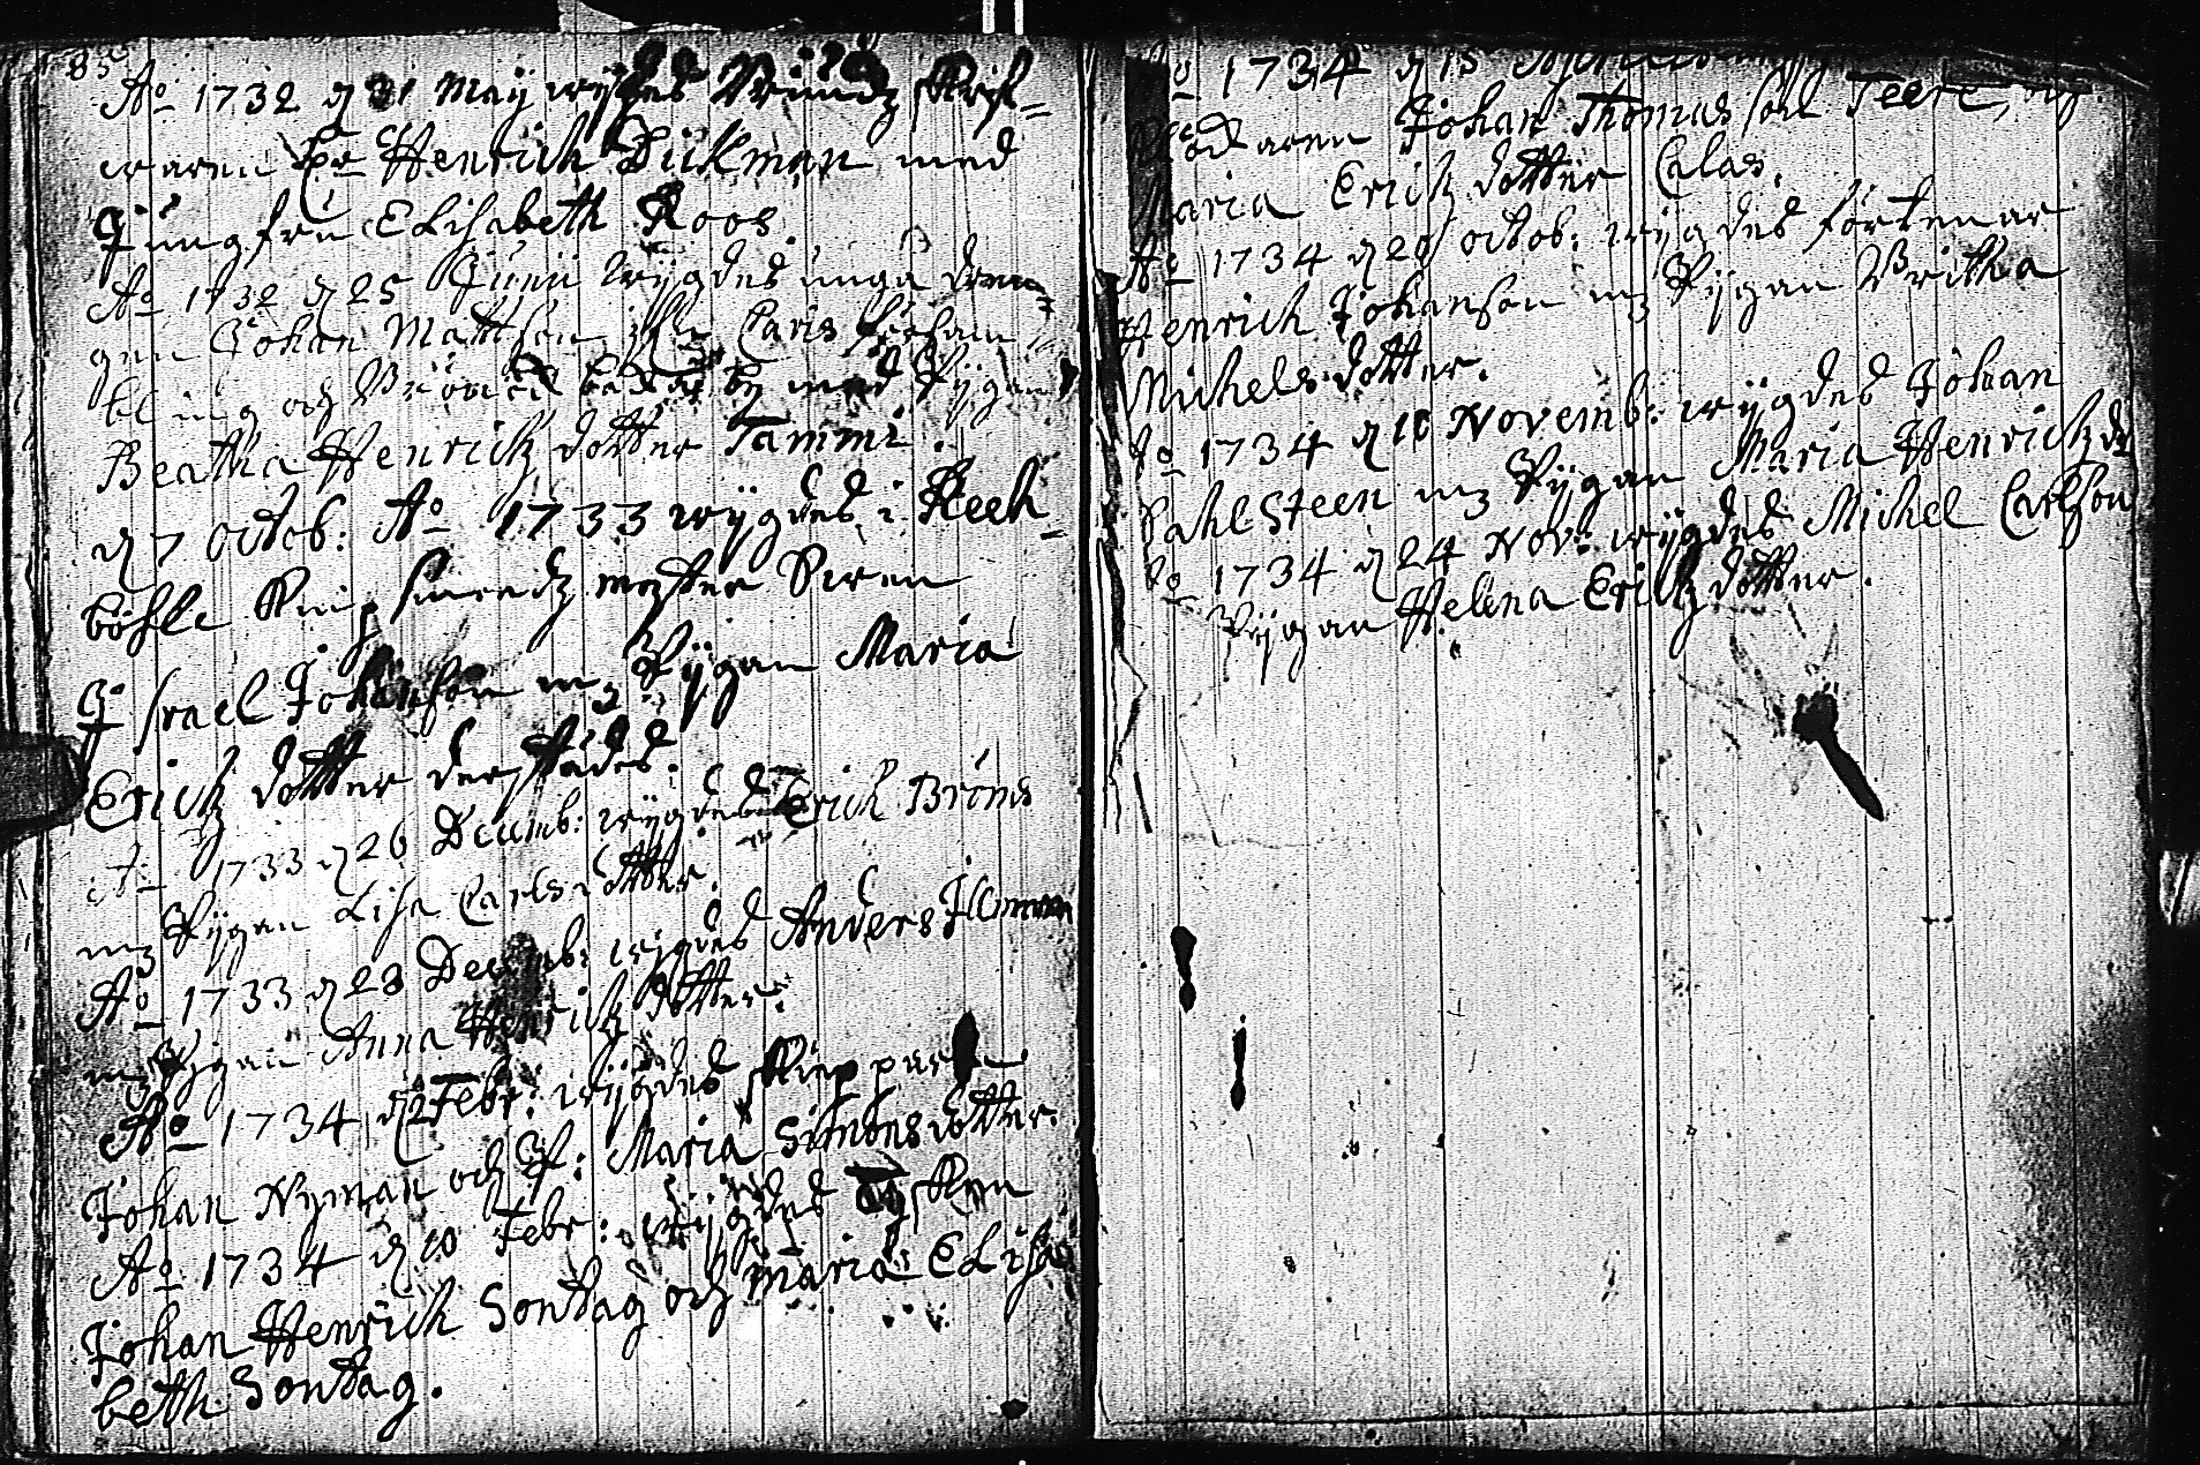 85
Ao 1732 d 31 Maij wijgdes
waren Hr Henrich Dückman med
Jungfru Elisabeth Roos.
Ao 1732 d 25 Junii wijgdes unga dren=
gen Johan Mattsson Caris
bling och med Pijgan
Beatha Henrichz dotter Tammi.
d 7 octob: Ao 1733 wijgdes i Skeek=
böhle Knip smedz mester Swen
Israel Johanson mz Pijgan Maria
Erichz dotter derstädes.
Ao 1733 d 26 Decemb: wijgdes Erich Bröms
mz Pijgan Lisa Carlsdotter.
Ao 1733 d 28 Decemb: wijgdes Anders Ilman
mz Pijgan Anna Henrichz dotter.
Ao 1734 d 2 Febr: wijgdes skepparen
Johan Nyman och J: Maria Simonsdotter.
Ao 1734 d 10 Febr: wijgdes Tysken
Johan Henrich Sontag och Maria Elisa
beth Sontag.
Ao 1734 d 15
Johan Thomasson Teere, och
Maria Erichz dotter Calas.
Ao 1734 d 20 octob: wijgdes förtenar
Henrich Johanson mz Pijgan Britha
Michelsdotter.
Ao 1734 d 10 Novemb: wijgdes Johan
Dahlsteen mz Pijgan Maria Henrichz dr
Ao 1734 d 24 Nov: wijgdes Michel Carlson
Pijgan Helena Erichz dotter.